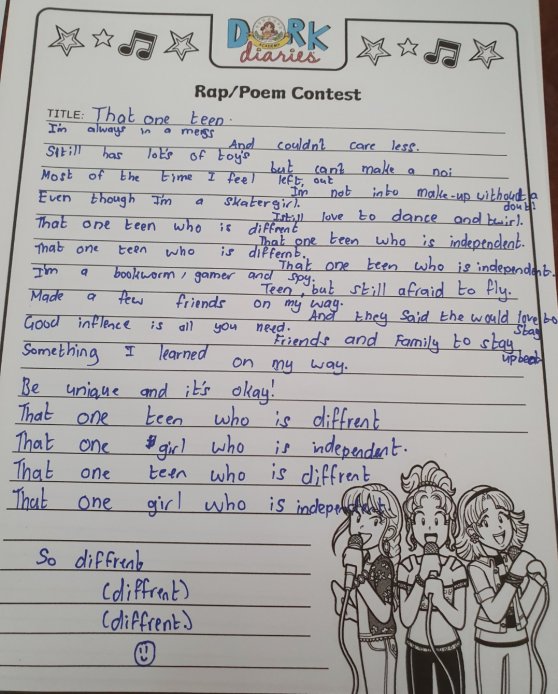 DORK
diaries
Rap/Poem Contest
TITLE: That one teen.
I'm always in a mess
And couldn't care less.
Sttill has lot's of toy's
but can't make a noi
Most of the time I feel left, out
I'm not into make-up without a doubt
Even though I'm a skatergirl.
I still love to dance and twirl.
That one teen who is diffrent
That one teen who is independent.
That one teen who is differnt.
That one teen who is independent.
I'm a bookworm, gamer and spy.
Teen, but still afraid to fly.
Made a few friends on my way.
And they said the would love to stay
Good inflence is all you need.
Friends and Family to stay upbeat
Something I learned on my way.
Be unique and it's okay!
That one teen who is diffrent
That one girl who is independent.
That one teen who is diffrent
That one girl who is independent.
So diffrent
(diffrent)
(diffrent.)